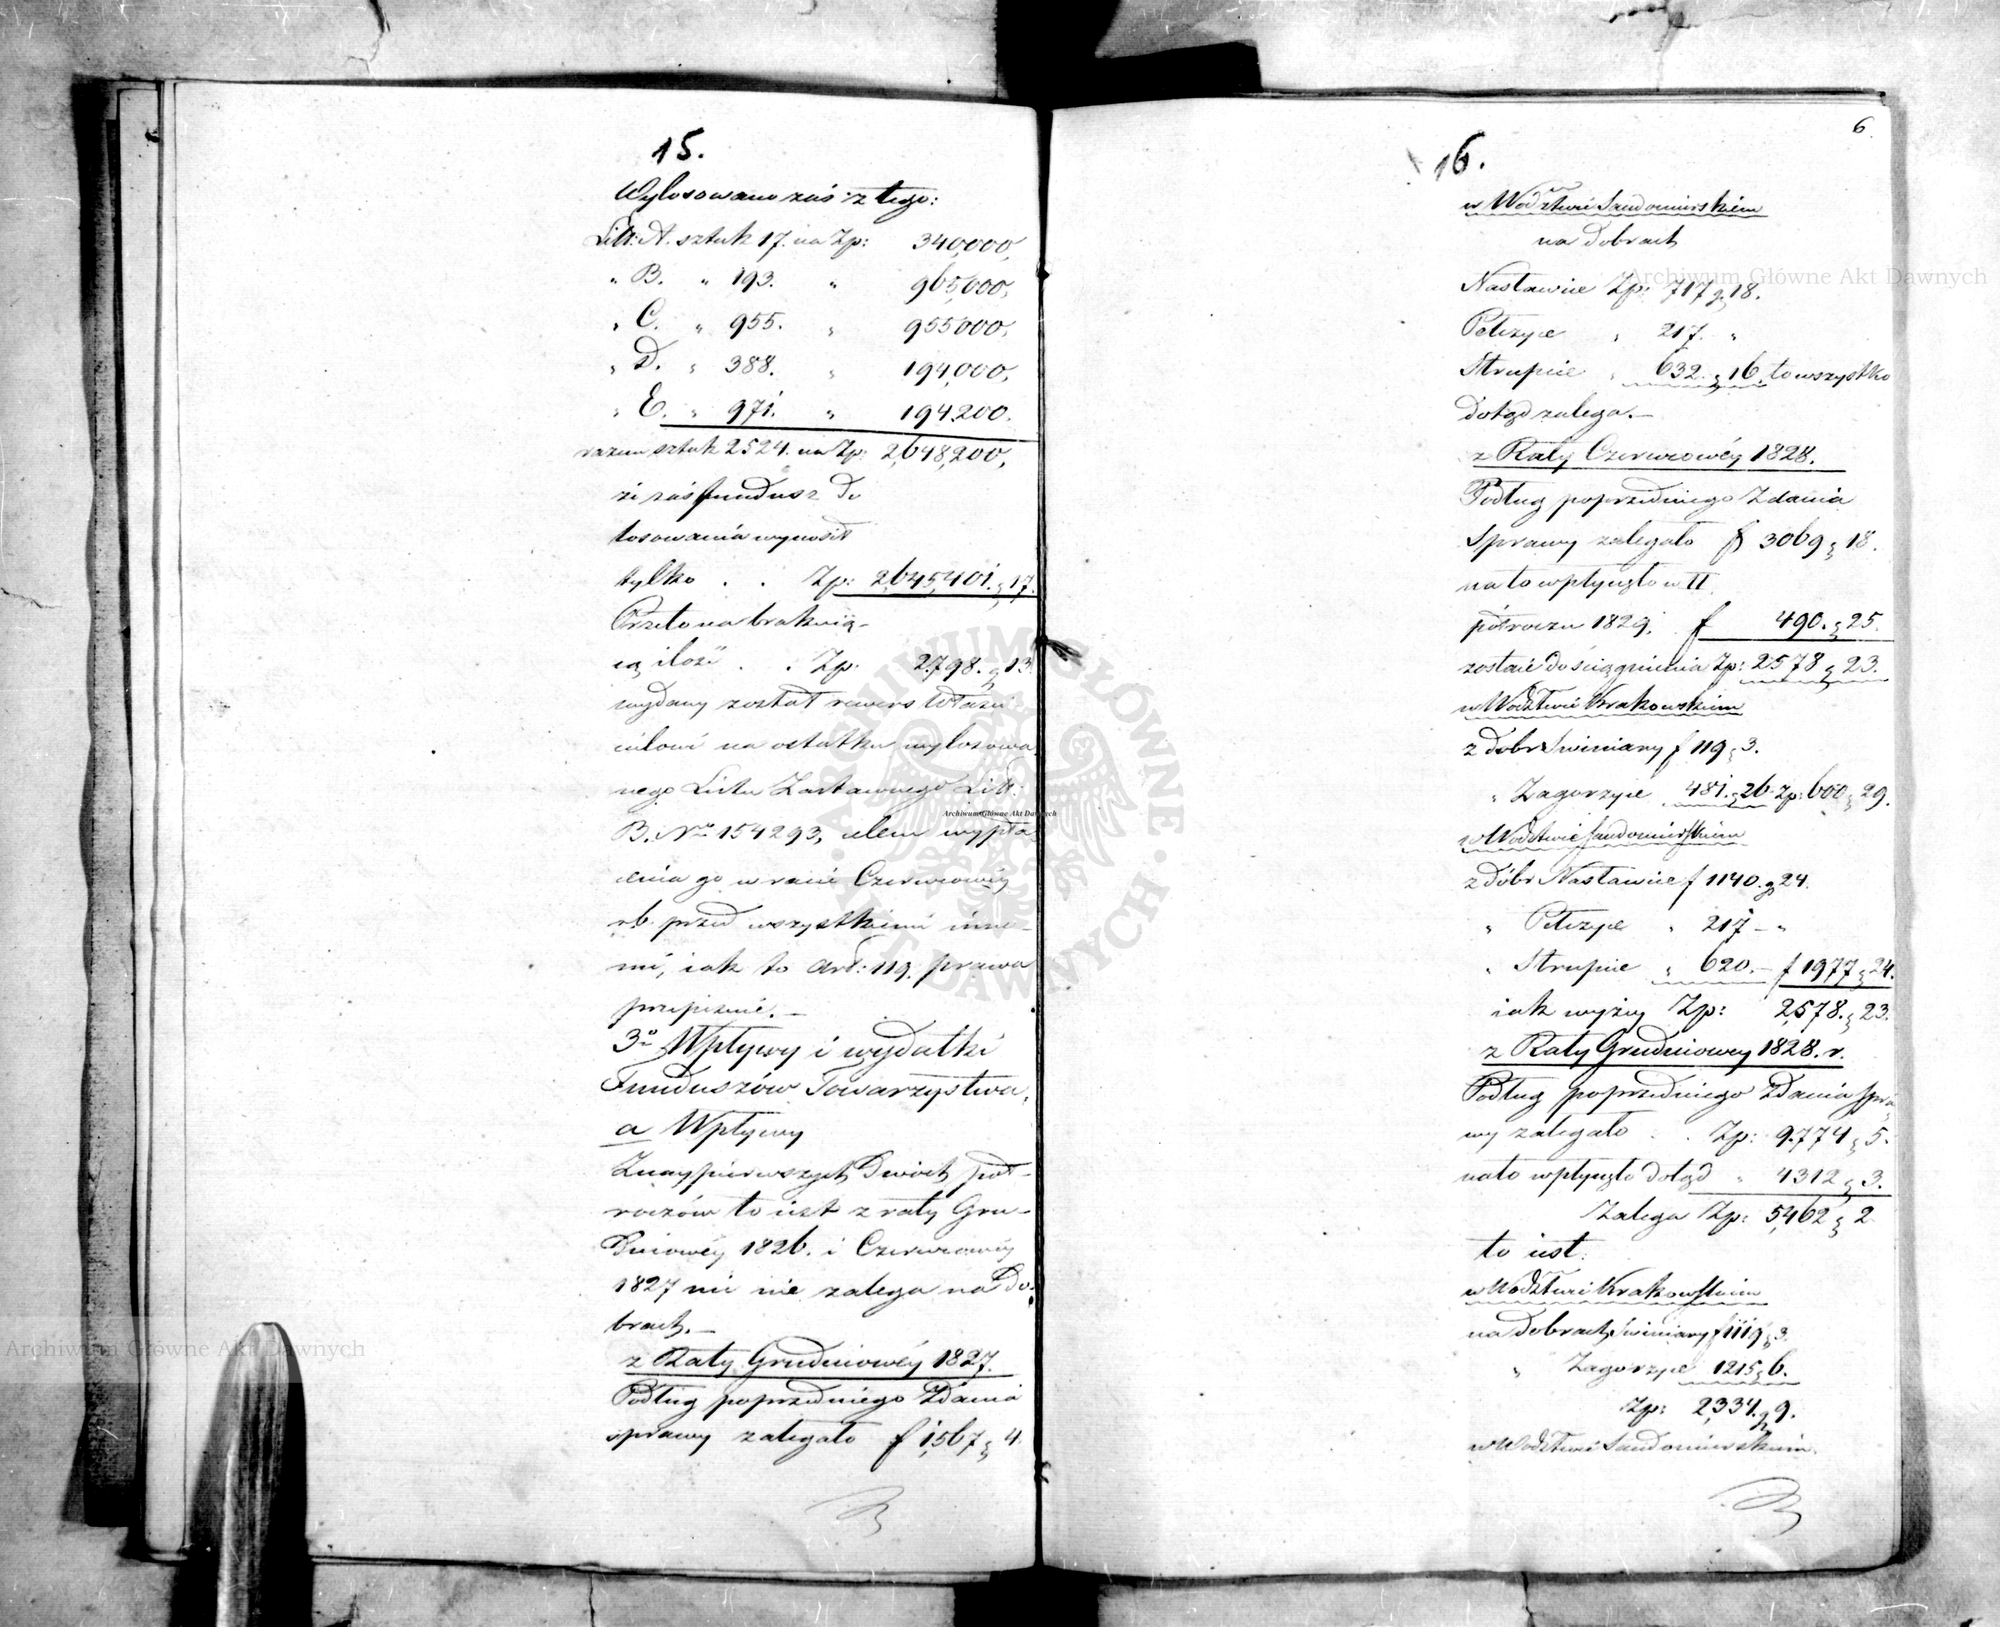 15.
Wylosowano zaś z tego:
Litt: A. sztuk 17. na Zp: 340,000,
" B. " 193. " 965,000,
" C. " 955. " 955000,
" D. " 388. " 194,000,
" E. " 971. " 194,200.
razem sztuk 2524. na Zp: 2,648,200,
że zaś fundusz do
losowania wynosił
tylko . . Zp: 2,645,401. g 17.
Przeto na brakuią-
cą ilość . . Zp: 2,798. g 13.
wydany został rewers Właści-
cielowi na ostatku wylosowa-
nego Listu Zastawnego Litt:
B. No 154293, celem wypła-
cenia go w racie Czerwcowéy
rb. przed wszystkiemi inne-
mi, iak to Art: 119. prawa
przepisuie.—
3o Wpływy i wydatki
Funduszów Towarzystwa.
a Wpływy
Z naypierwszych Dwóch pół-
roczów to iest z raty Gru-
dniowéy 1826. i Czerwcowéy
1827 nic nie zalega na Do-
brach.—
z Raty Grudniowéy 1827.
Podług poprzedniego Zdania
sprawy zalegało f 1,567 g 4.
6
16.
w Wodztwie Sandomirskiem
na Dobrach
Nasławice Zp: 717 g 18.
Pełczyce " 217. "
Strupice " 632. g 16. to wszystko
dotąd zalega.—
z Raty Czerwcowéy 1828.
Podług poprzedniego Zdania
Sprawy zalegało f 3069 g 18.
na to wpłynęło w II
półroczu 1829. f 490. g 25.
zostaie do ściągnienia Zp: 2578 g 23.
w Wodztwie Krakowskiem
z dobr Swiniary f 119 g 3.
" Zagorzyce 481. g 26. Zp: 600 g 29.
w Wodztwie Sandomirskiem
z Dóbr Nasławice f 1140. g 24.
" Pełczyce " 217 - "
" Strupice " 620. — f 1977 g 24.
iak wyżey Zp: 2,578. g 23.
z Raty Grudniowey 1828. r.
Podług poprzedniego Zdania spra-
wy zalegało . . Zp: 9,774 g 5.
na to wpłynęło dotąd " 4312 g 3.
Zalega Zp: 5,462 g 2
to iest:
w Wodztwie Krakowskiem
na dobrach Swiniary f 1119 g 3.
" Zagorzyce 1215 g 6.
Zp: 2,334. g 9.
w Wodztwie Sandomirskiem.
Archiwum Główne Akt Dawnych
Archiwum Główne Akt Dawnych
Archiwum Główne Akt Dawnych
ARCHIWUM GŁÓWNE AKT DAWNYCH